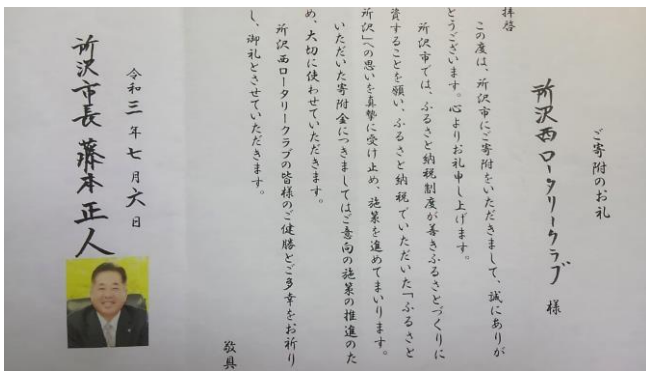 ご寄附のお礼
所沢西ロータリークラブ 様
拝啓
この度は、所沢市にご寄附をいただきまして、誠にありが
とうございます。心よりお礼申し上げます。
所沢市では、ふるさと納税制度が善きふるさとづくりに
資することを願い、ふるさと納税でいただいた「ふるさと
所沢」への思いを真摯に受け止め、施策を進めてまいります。
いただいた寄附金につきましてはご意向の施策の推進のた
め、大切に使わせていただきます。
所沢西ロータリークラブの皆様のご健勝とご多幸をお祈り
し、御礼とさせていただきます。
敬具
令和三年七月六日
所沢市長 藤本正人